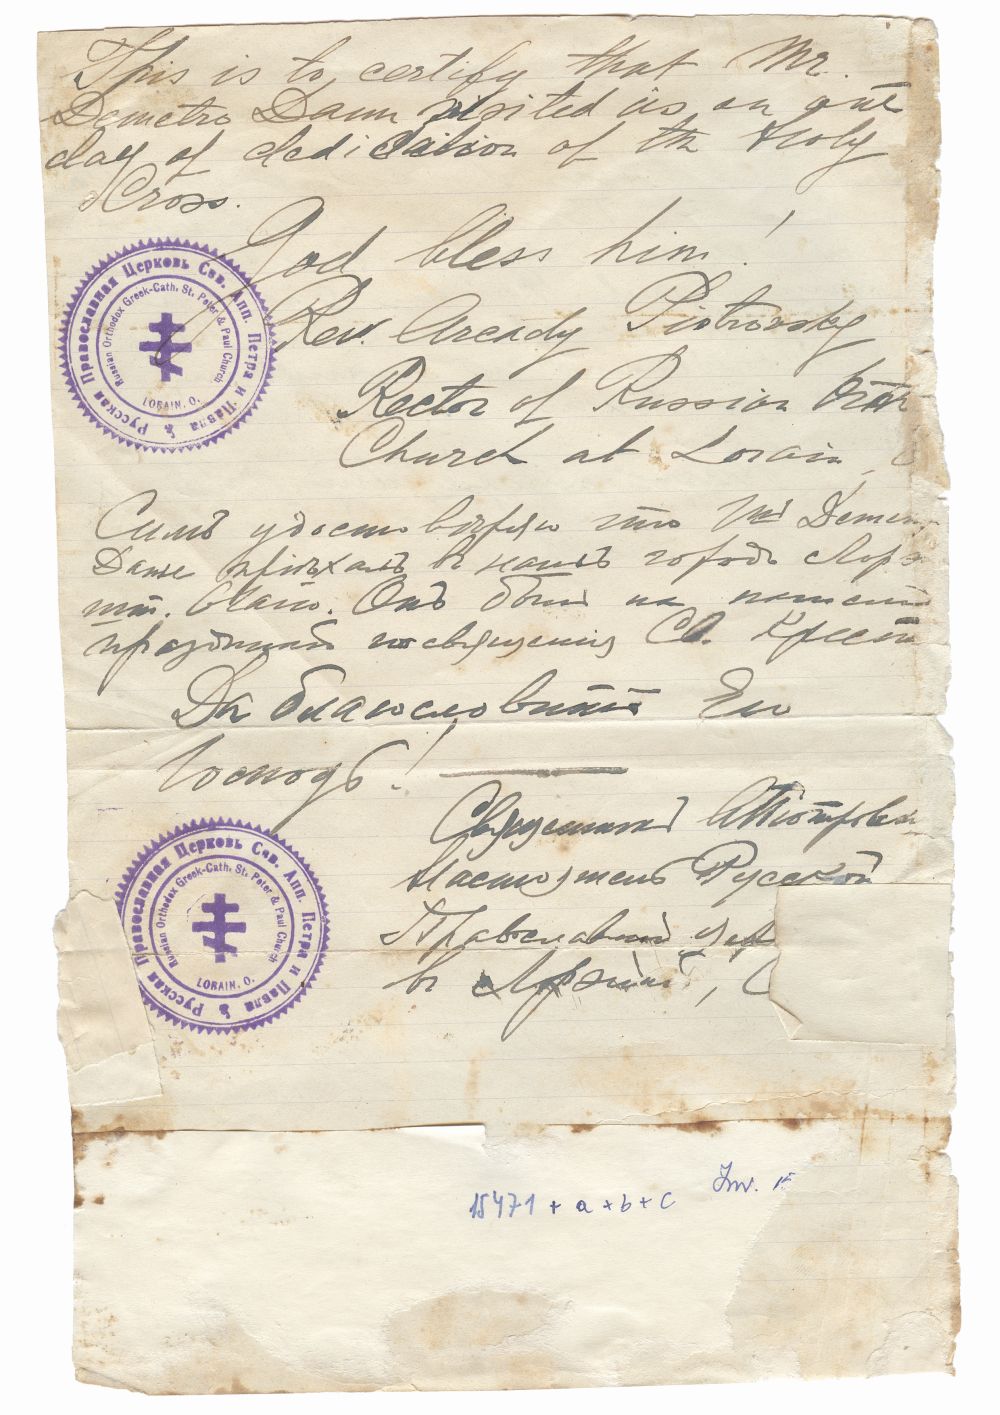 This is to certify that Mr.
Demetro Dann visited us on our
day of dedication of the Holy
Cross.
God bless him!
Rev. Arcady Piotrovsky
Rector of Russian
Church at Lorain,
Русская Православная Церковь Свв. Апп. Петра и Павла
Russian Orthodox Greek-Cath. St. Peter & Paul Church
LORAIN, O.
Симъ удостовѣряю что Mr
пріѣхалъ въ нашъ городъ
Онъ былъ на нашемъ
посвященія Св. Креста
Да благословитъ Его
Господь!
Священникъ
Настоятель Русской
Православной
въ
Русская Православная Церковь Свв. Апп. Петра и Павла
Russian Orthodox Greek-Cath. St. Peter & Paul Church
LORAIN, O.
Inv.
15471 + a + b + c